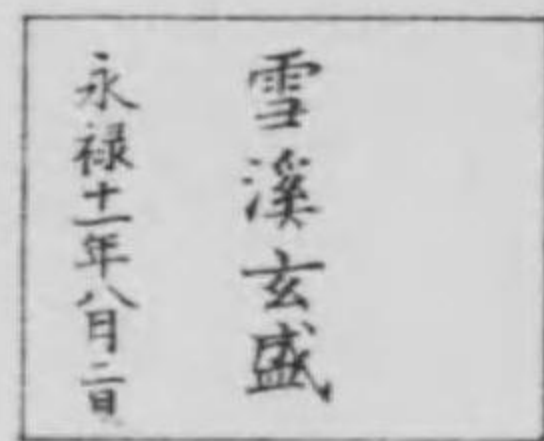 雪溪玄盛
永禄十一年八月二日